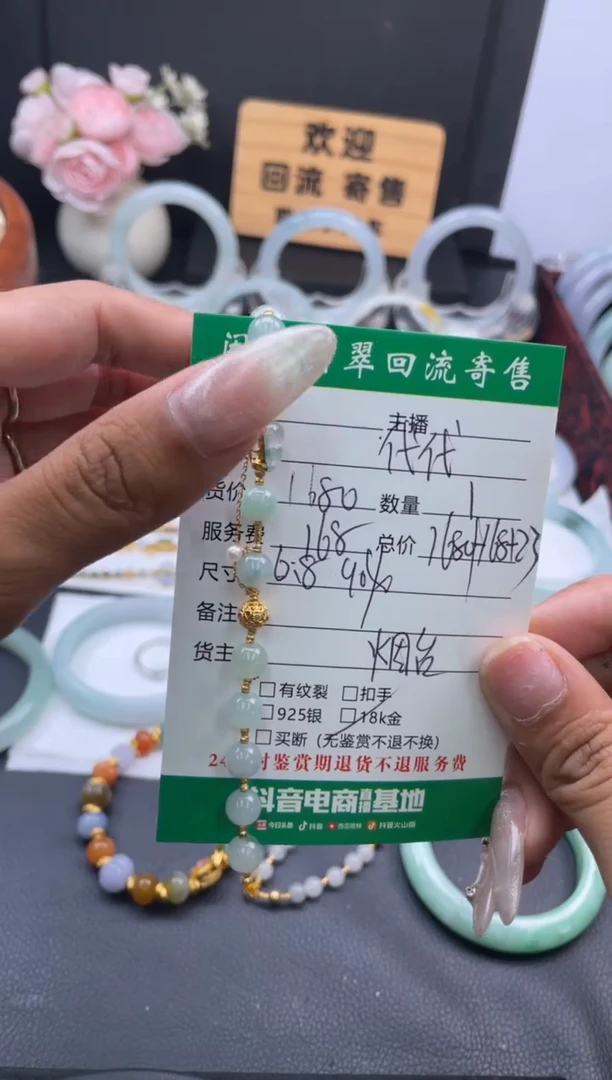 欢迎
回流 寄售
翠回流寄售
主播 代代
货价 1680 数量 1
服务费 168 总价 1680+168+23
尺寸 6.8
备注
货主 烟台
□有纹裂 □扣手
□925银 □18k金
□买断（无鉴赏不退不换）
鉴赏期退货不退服务费
抖音电商直播基地
今日头条 抖音 西瓜视频 抖音火山版